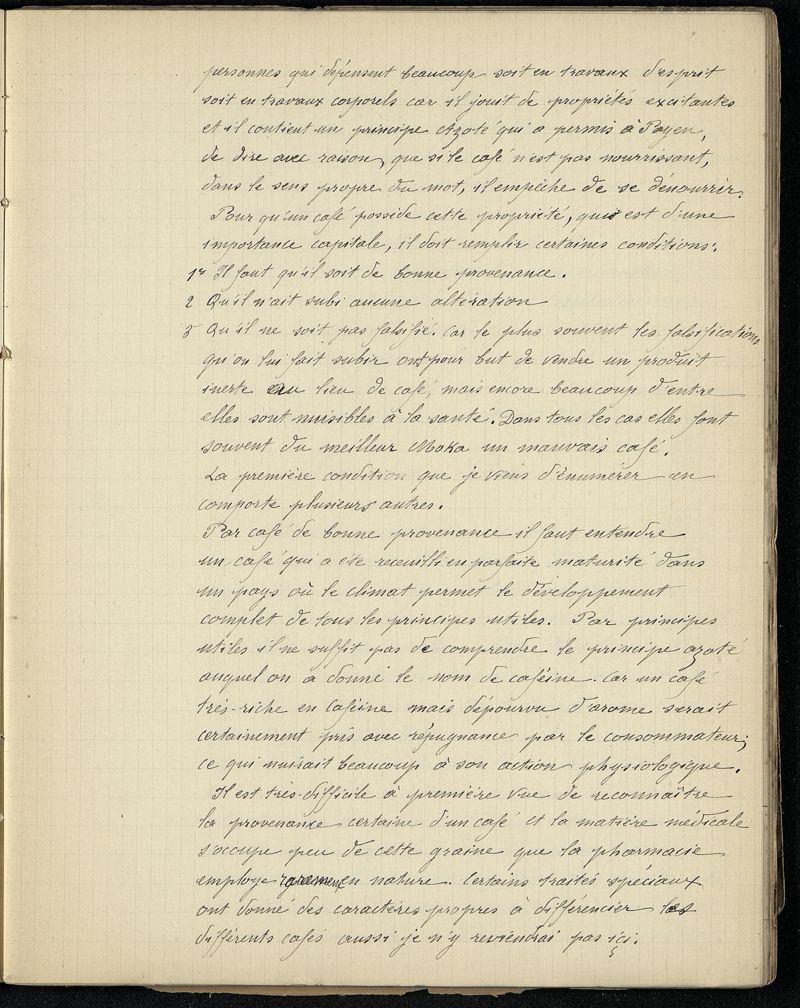 personnes qui dépensent beaucoup soit en travaux d'esprit
soit en travaux corporels car il jouit de propriétés excitantes
et il contient un principe Azoté qui a permis à Payen,
de dire avec raison, que si le café n'est pas nourrissant,
dans le sens propre du mot, il empêche de se dénourrir.
Pour qu'un café possède cette propriété, qui est d'une
importance capitale, il doit remplir certaines conditions:
1º Il faut qu'il soit de bonne provenance.
2 Qu'il n'ait subi aucune altération
3 Qu'il ne soit pas falsifié. Car le plus souvent les falsifications
qu'on lui fait subir ont pour but de vendre un produit
inerte au lieu de café, mais encore beaucoup d'entre
elles sont nuisibles à la santé. Dans tous les cas elles font
souvent du meilleur Moka un mauvais café.
La première condition que je viens d'énumérer en
comporte plusieurs autres.
Par café de bonne provenance il faut entendre
un café qui a été receuilli en parfaite maturité dans
un pays où le climat permet le développement
complet de tous les principes utiles. Par principes
utiles il ne suffit pas de comprendre le principe azoté
auquel on a donné le nom de caféine. Car un café
très-riche en caféine mais dépourvu d'arome serait
certainement pris avec répugnance par le consommateur;
ce qui nuirait beaucoup à son action physiologique.
Il est très-difficile à première vue de reconnaître
la provenance certaine d'un café et la matière médicale
s'occupe peu de cette graine que la pharmacie
employe rarement en nature. Certains traités spéciaux
ont donné des caractères propres à différencier les
différents cafés aussi je n'y reviendrai pas ici.